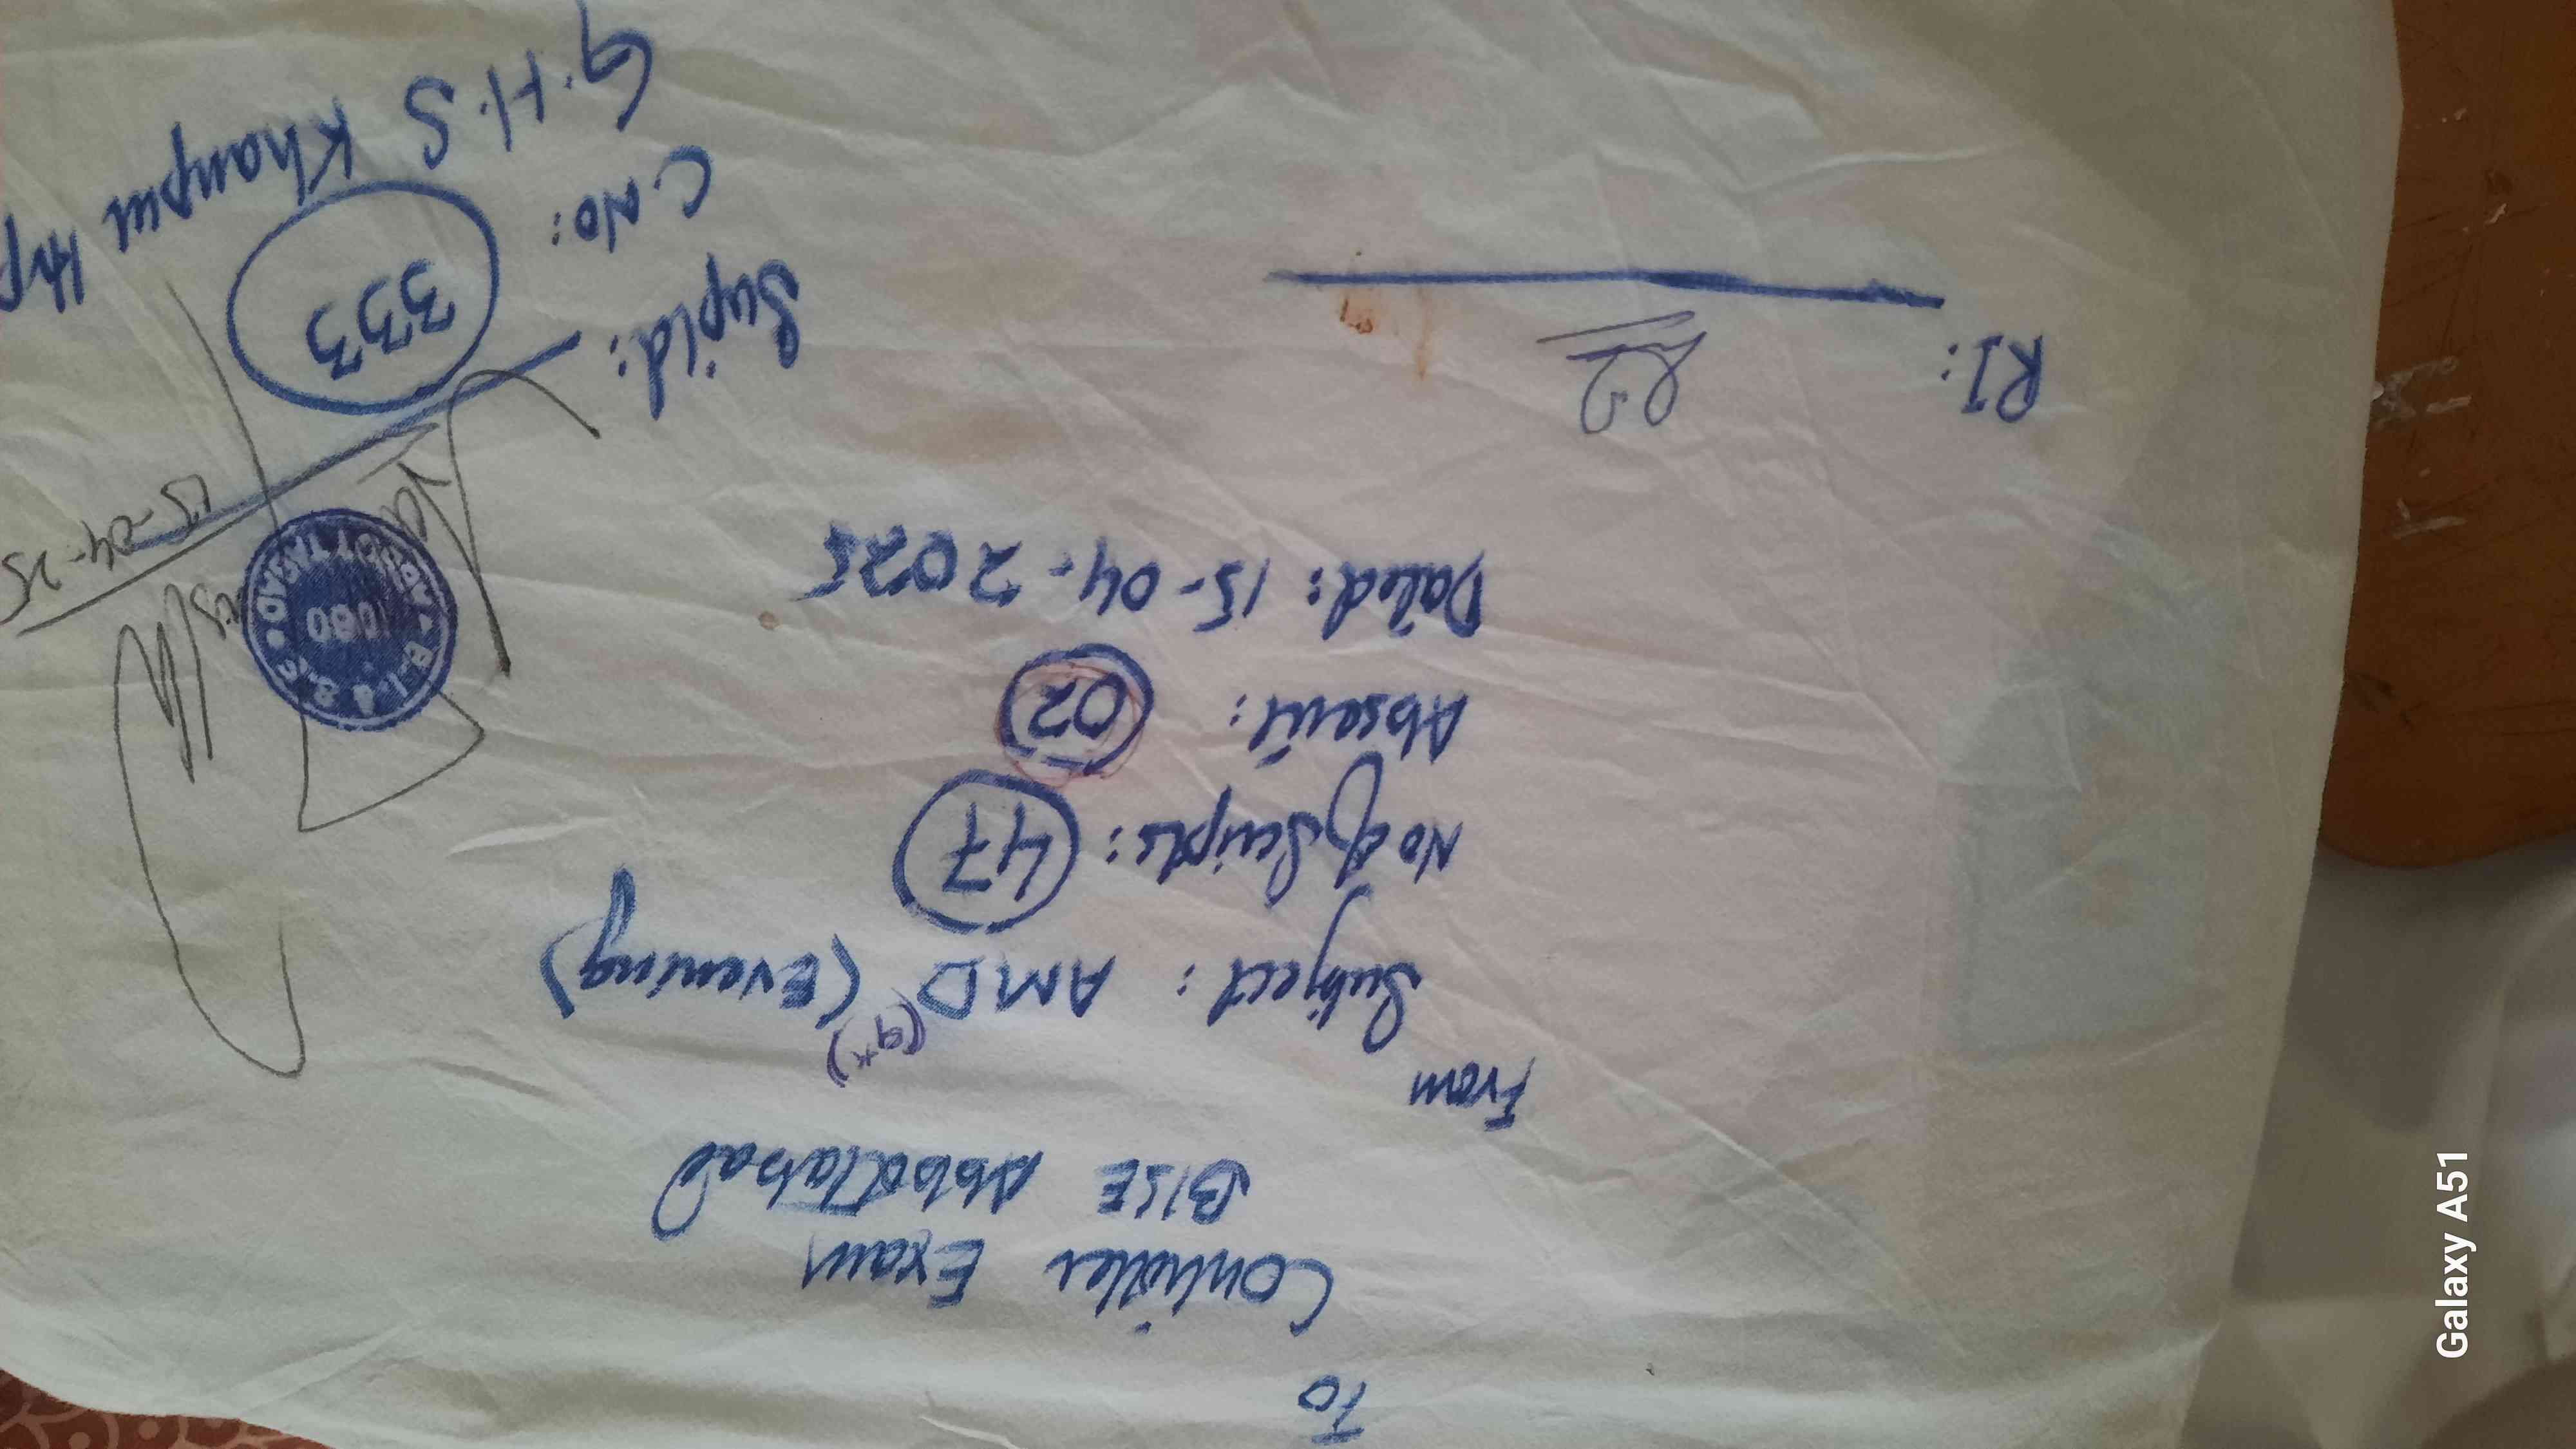 To
Controller Exam
BISE Abbottabad
From
Subject: AMD (9th) (Evening)
No of Scripts: 47
Absent: 02
Dated: 15-04-2025
RI:
Suptd:
C.No: 333
G.H.S Khanpur
15-04-25
B.I.&S.E ABBOTTABAD
Galaxy A51